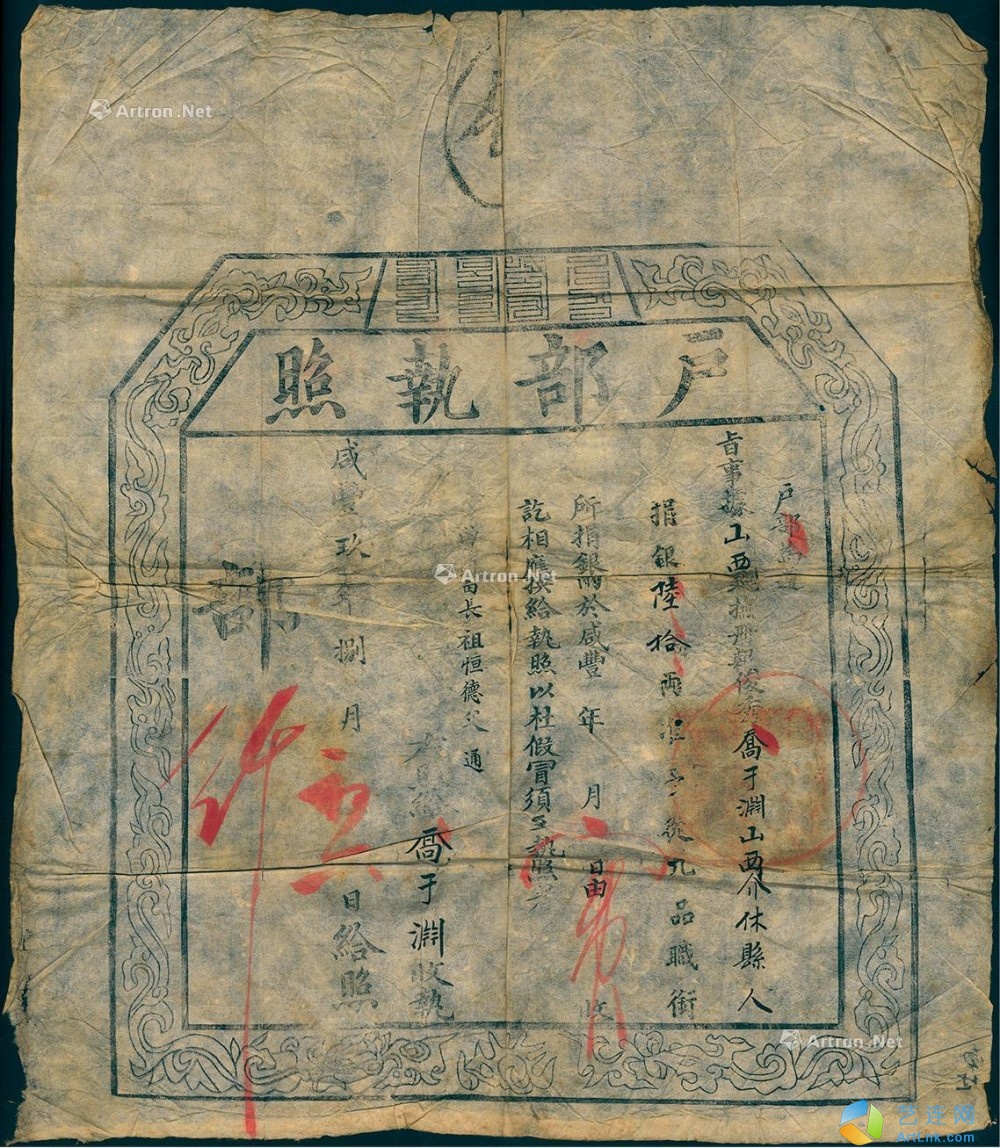 戶部執照
戶部爲遵
旨事據山西巡撫冊報俊秀喬于淵山西介休縣人
捐銀陸拾兩准予從九品職銜
所捐銀兩於咸豐 年 月 日由 收
訖相應換給執照以杜假冒須至執照者
曾 祖恒德父通
右照給喬于淵收執
咸豐玖年捌月 日給照
部
行
Artron.Net
Artron.Net
Artron.Net
艺连网
ArtLnk.com